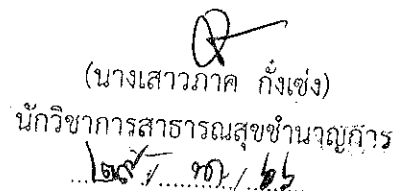 (นางเสาวภาค กั้งเซ่ง)
นักวิชาการสาธารณสุขชำนาญการ